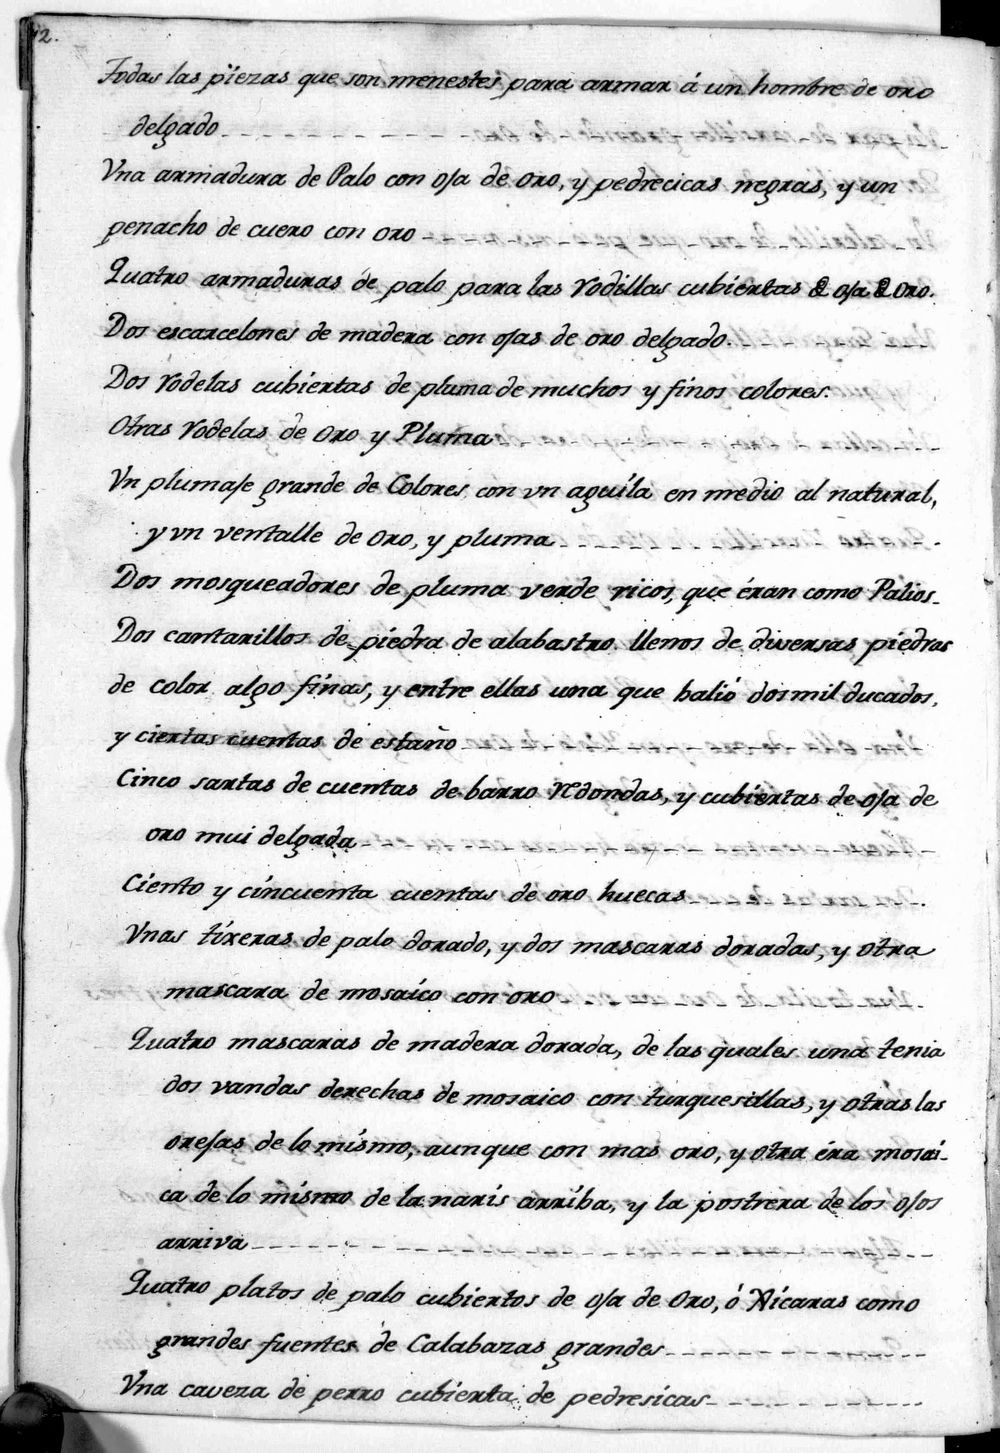 12.
Todas las piezas que son menestes para armar á un hombre de oro
delgado
Vna armadura de Palo con oja de oro, y pedrecicas negras, y un
penacho de cuero con oro
Quatro armaduras de palo para las rodillas cubiertas de oja de Oro.
Dos escarcelones de madera con ojas de oro delgado.
Dos rodelas cubiertas de pluma de muchos y finos colores.
Otras rodelas de Oro y Pluma
Vn plumaje grande de Colores con vn aguíla en medio al natural,
y vn ventalle de Oro, y pluma
Dos mosqueadores de pluma verde ricos, que éran como Palios
Dos cantarillos de piedra de alabastro llenos de diversas piedras
de color algo fínas, y entre ellas una que balió dos mil ducados,
y ciertas cuentas de estaño
Cinco sartas de cuentas de barro redondas, y cubiertas de oja de
oro mui delgada
Ciento y cincuenta cuentas de oro huecas
Vnas tíxeras de palo dorado, y dos mascaras doradas, y otra
mascara de mosaíco con oro
Quatro mascaras de madera dorada, de las quales una tenia
dos vandas derechas de mosaico con turquesillas, y otras las
orejas de lo mísmo, aunque con mas oro, y otra éra mosaí-
ca de lo mísmo de la narís arríba, y la postrera de los ojos
arriva
Quatro platos de palo cubiertos de oja de Oro, ó Xícaras como
grandes fuentes de Calabazas grandes
Vna caveza de perro cubierta de pedresicas